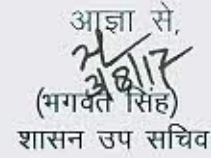 आज्ञा से,
3/8/17
(भगवत सिंह)
शासन उप सचिव